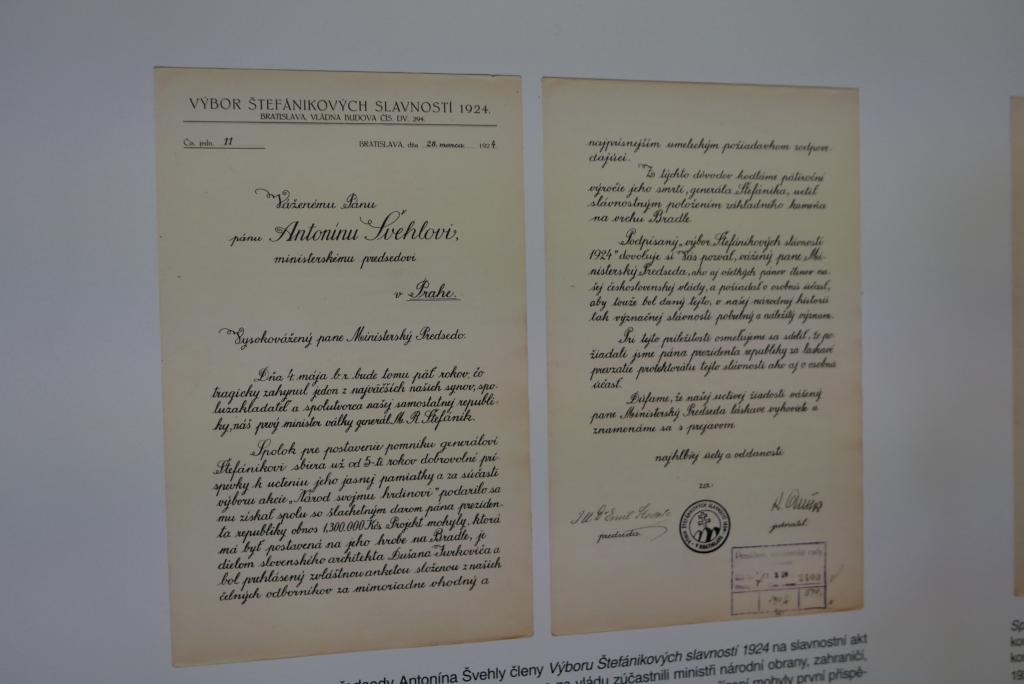 VÝBOR ŠTEFÁNIKOVÝCH SLAVNOSTÍ 1924.
BRATISLAVA, VLÁDNA BUDOVA ČÍS. DV. 294.
Čís. jedn. 11
BRATISLAVA, dňa 28. marca 1924
Váženému Pánu
pánu Antonínu Švehlovi,
ministerskému predsedovi
v Prahe.
Vysokovážený pane Ministerský Predsedo:
Dňa 4. mája b. r. bude tomu päť rokov, čo
tragicky zahynul jeden z najväčších našich synov, spo-
luzakladateľ a spolutvorca našej samostatnej republi-
ky, náš prvý minister války generál M. R. Štefánik.
Spolok pre postavenie pomníku generálovi
Štefánikovi sbiera už od 5-ti rokov dobrovolné prí-
spevky k ucteniu jeho jasnej pamiatky a za súčasti
výboru akcie „Národ svojmu hrdinovi" podarilo sa
mu získať spolu so šlachetným darom pána preziden-
ta republiky obnos 1,300.000 Kčs. Projekt mohyly, ktorá
má byť postavená na jeho hrobe na Bradle, je
dielom slovenského architekta Dušana Jurkoviča a
bol prehlásený zvláštnou anketou složenou z našich
čelných odborníkov za mimoriadne vhodný a
najprísnejším umeleckým požiadavkom zodpove-
dajúci.
Z týchto dôvodov hodláme päťročné
výročie jeho smrti, generála Štefánika, uctiť
slávnostným položením základného kameňa
na vrchu Bradle.
Podpísaný „výbor Štefánikových slávností
1924" dovoľuje si Vás pozvať, vážený pane Mi-
nisterský Predseda, ako aj všetkých pánov členov na-
šej československej vlády, a požiadať o osobnú účasť,
aby touže bol daný tejto, v našej národnej historii
tak význačnej slávnosti potrebný a náležitý význam.
Pri tejto príležitosti osmelujeme sa sdeliť, že po-
žiadali jsme pána prezidenta republiky za láskavé
prevzatie protektorátu tejto slávnosti ako aj o osobnú
účasť.
Dúfame, že našej uctivej žiadosti vážený
pane Ministerský Predseda láskave vyhoviete a
znamenáme sa s prejavom
najhlbšej úcty a oddanosti
za:
predseda.
jednateľ.
předsedy Antonína Švehly členy Výboru Štefánikových slavností 1924 na slavnostní akt
za vládu zúčastnili ministři národní obrany, zahraničí,
mohyly první příspě-